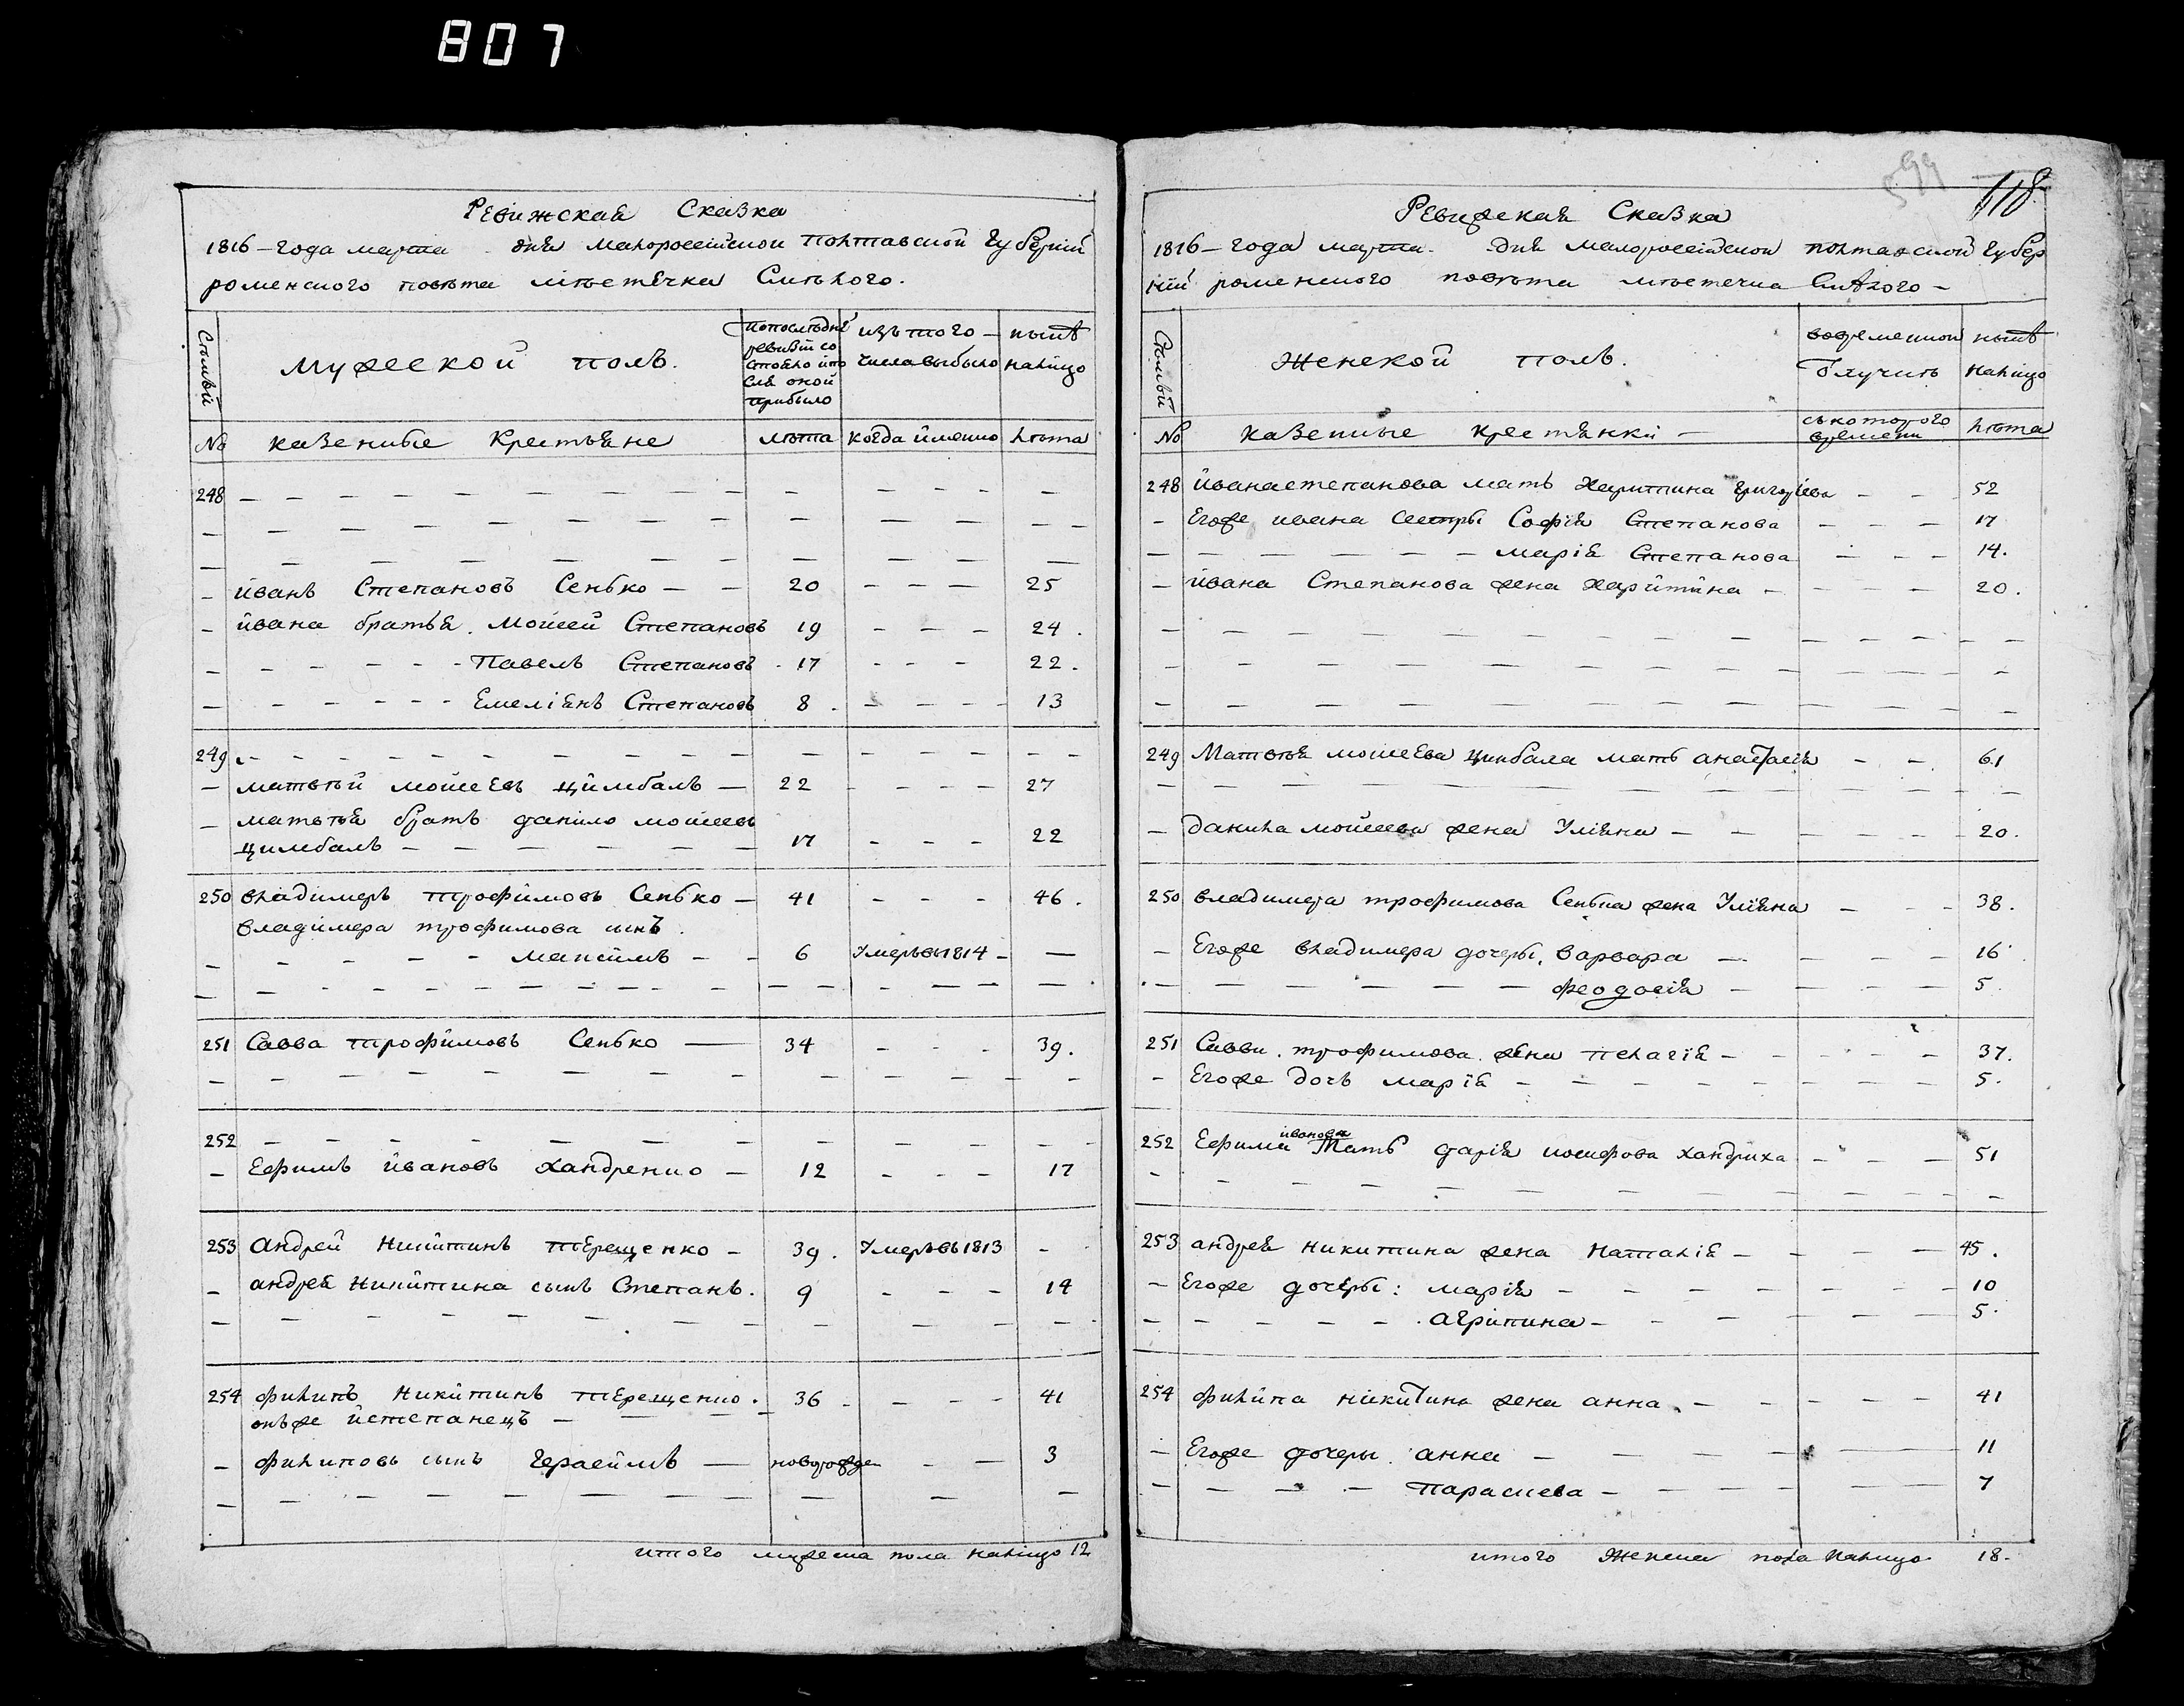 807
Ревижская Сказка
1816 – года марта дня малороссійской полтавской губерній
роменского повѣта мѣстечка Смѣлого.
Столькій
мужеской полъ.
попослѣдней ревизіи состояло ипослѣ оной прибыло
изъ того числа выбыло
нынѣ налицо
№ казенные Крестьяне лѣта когда именно лѣта
248 – – – – –
иванъ Степановъ Сенько – – 20 – – – 25
– ивана братья. Мойсей Степановъ 19 – – – 24.
– – – – – – Павелъ Степановъ 17 – – – 22.
– – – – – – Емеліянъ Степановъ 8. – – – – 13
249 – – – – –
– матвѣй мойсеевъ цимбалъ – 22 – – – – 27
– матвѣя братъ данило мойсеевъ
цимбалъ – – – – – – 17 – – – 22
250 владимеръ трофимовъ Сенько – 41 – – – 46.
владимера трофимова сынъ.
– – – – – максимъ – – 6 Умеръ въ 1814 – –
251 Савва трофимовъ Сенько – 34 – – – 39.
252 – – – – –
– Ефимъ ивановъ хандренко – 12 – – – 17
253 андрей никитинъ терещенко – 39. Умеръ въ 1813 –
– андрея никитина сынъ Степанъ. 9 – – – 14
254 филипъ никитинъ терещенко. 36 – – – – 41
онъ же истепанецъ –
– филиповъ сынъ герасимъ – новорожден – – 3
итого мужеска пола налицо 12
599
118
Ревижская Сказка
1816 – года марта. дня малороссійской полтавской губер
ній роменского повѣта мѣстечка Смѣлого –
Столькій
Женской полъ.
вовременной отлучкѣ
нынѣ налицо
№ казенные крестянки – съ которого времени лѣта
248 ивана степанова мать харитина григорьева – – 52
– Егоже ивана сестры Софія Степанова – – – 17
– – – – – – – марія Степанова – – – 14.
– ивана Степанова жена харитина – – – – 20.
249 Матвѣя мойсеева цимбала мать анастасія – – 61
– данила мойсеева жена Уліяна – – – – – 20.
250 владимера трофимова Сенька жена Уліяна – – – 38.
– Егоже владимера дочеры, варвара – – – – 16
– – – – – – – феодосія – – – – 5.
251 Саввы. трофимова. жена пелагія – – – – – 37.
– Егоже дочь марія – – – – – – 5.
252 Ефима ивановамать дарія иосифова хандриха – – – 51
253 андрея никитина жена Наталія – – – – 45.
– Егоже дочеры: марія – – – – – – 10
– – – – – агрипина – – – – – – 5.
254 филипа никитина жена анна. – – – – – 41
– Егоже дочеры. анна – – – – – 11
– – – – параскева – – – – – 7
итого Женска пола налицо 18.